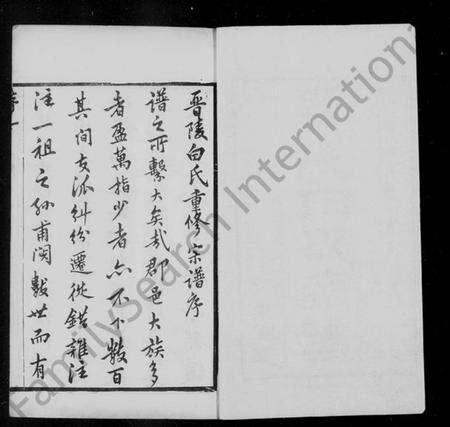 晋陵白氏重修宗谱序
谱之所繫大矣哉郡邑大族多
者盈萬指少者亦不下数百
其间支派糾纷遷徙錯雜往
往一祖之孙甫阅数世而有
序一
FamilySearch International